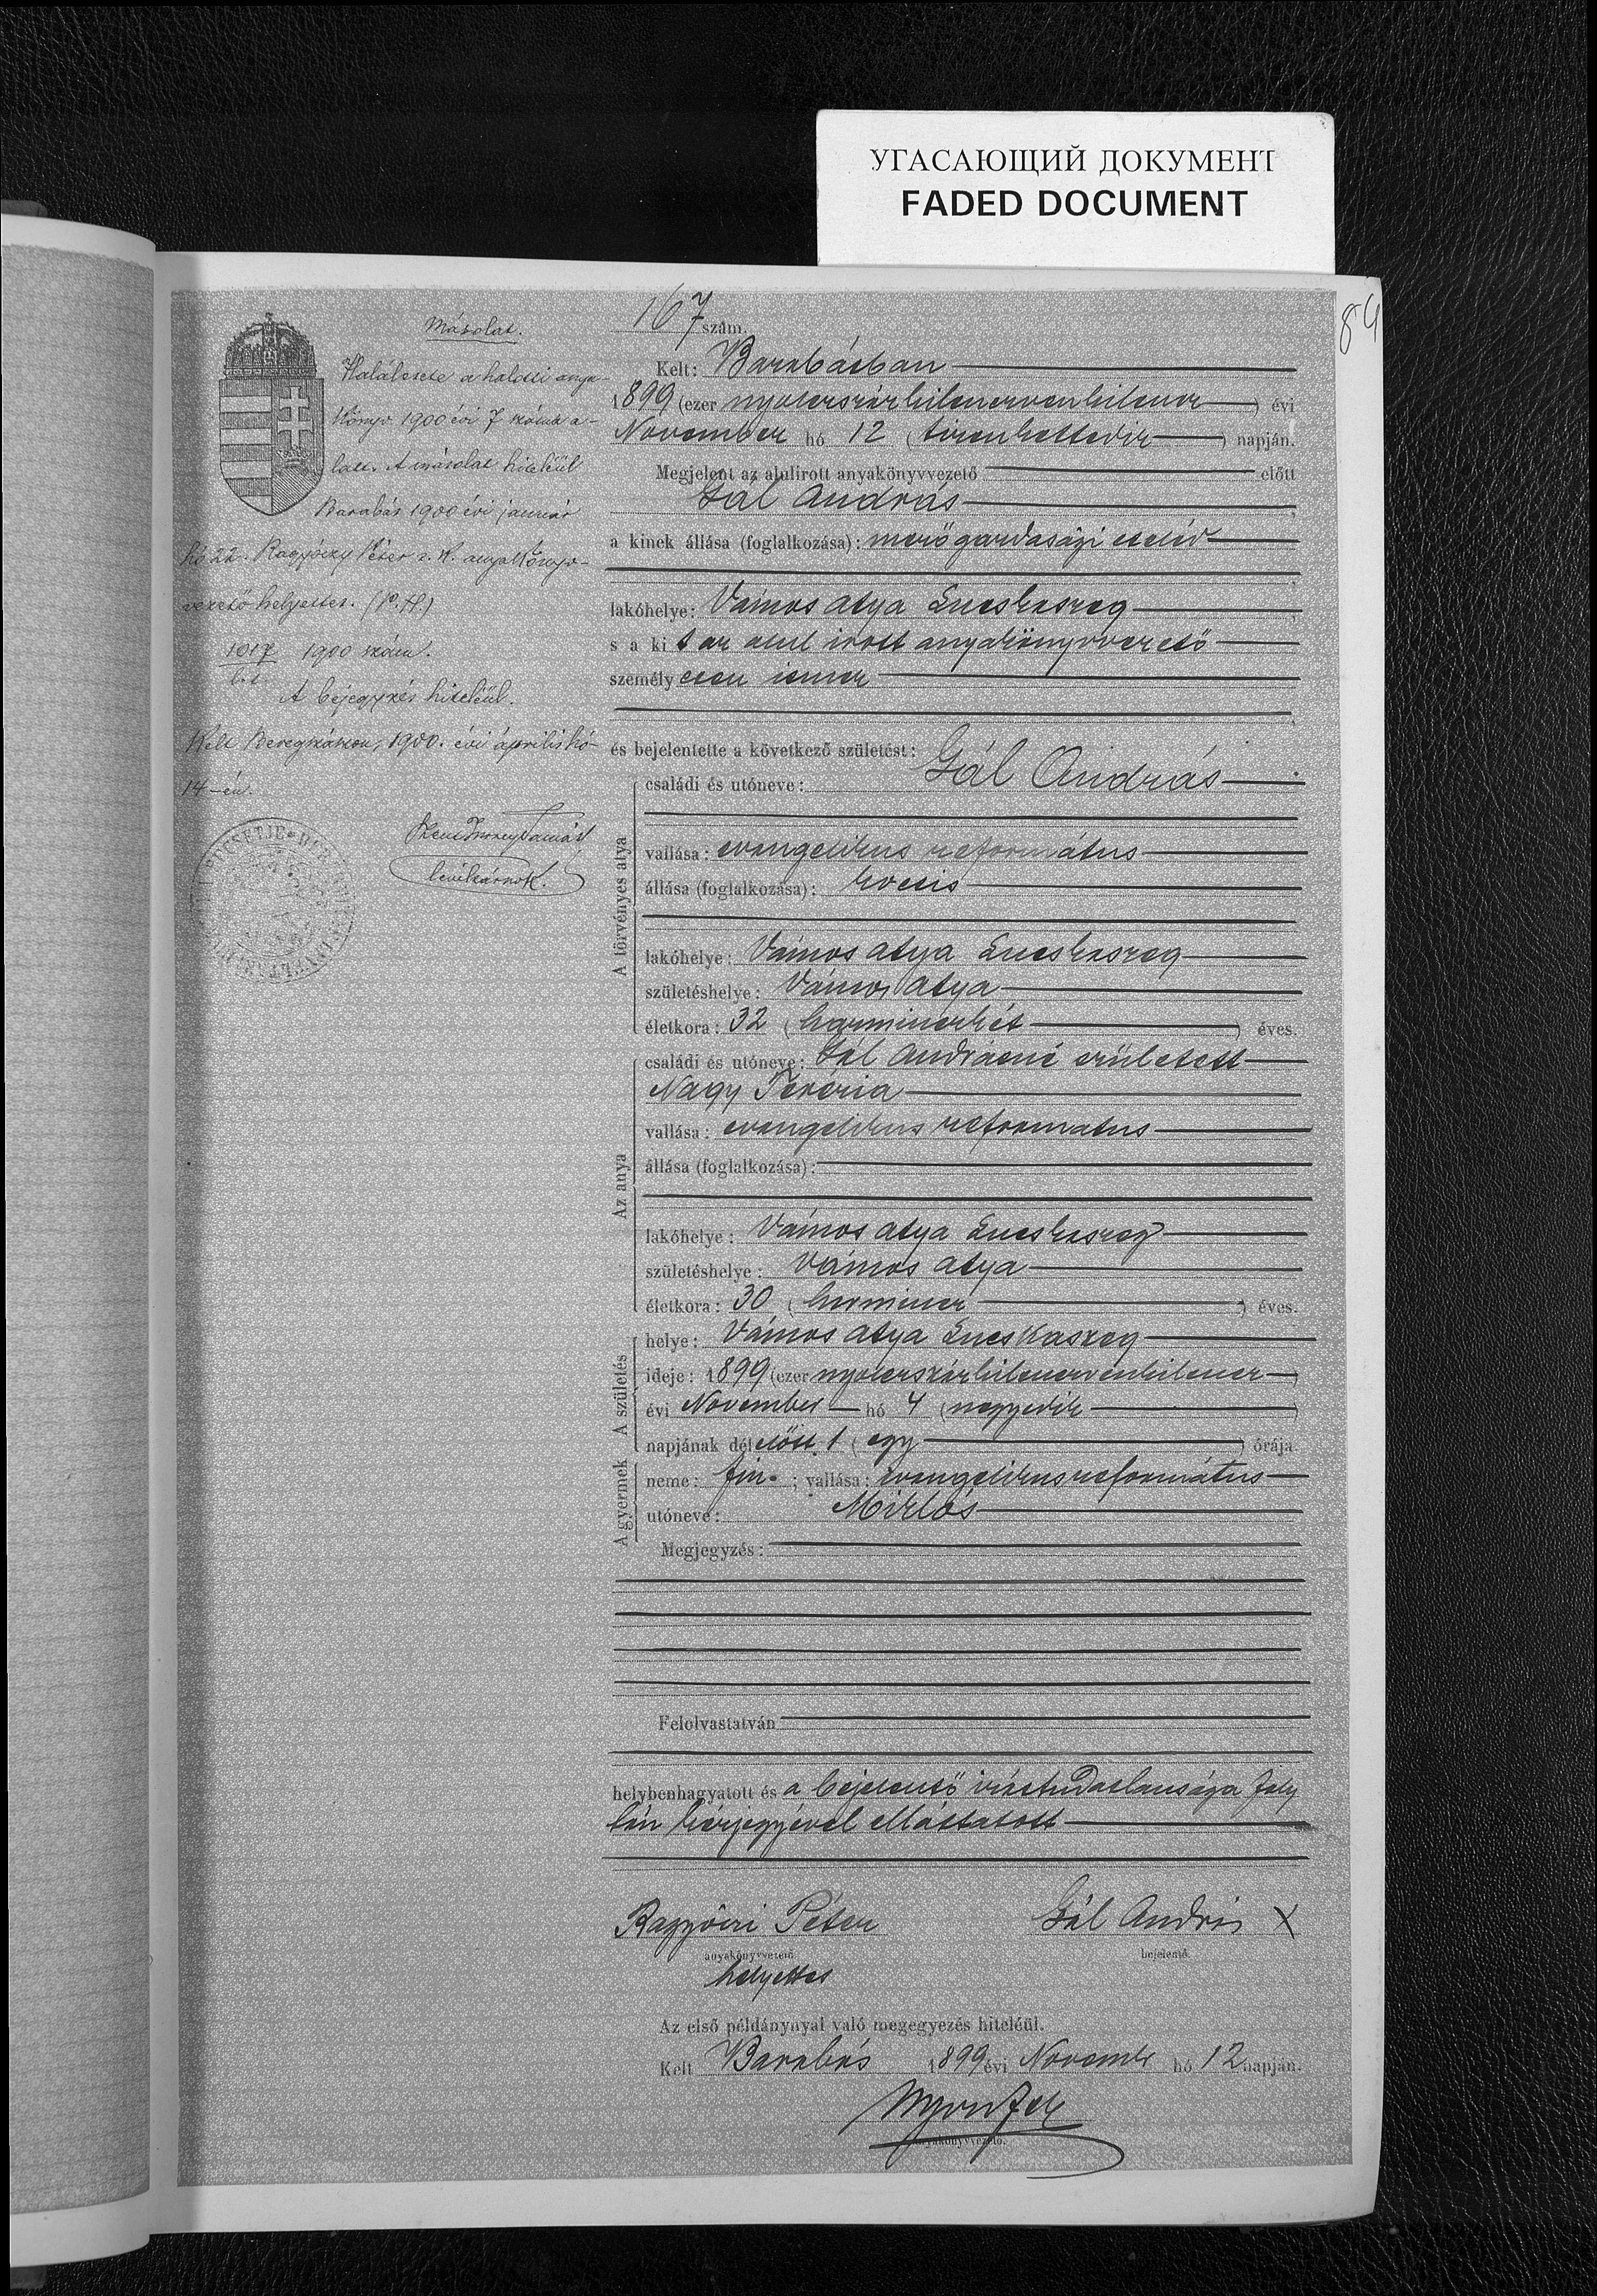 УГАСАЮЩИЙ ДОКУМЕНТ
FADED DOCUMENT
84
Másolat.
Halálesete a halotti anya-
könyv 1900 évi 7 száma a-
latt. A másolat hiteléül
Barabás 1900 évi január
hó 22. Ragyóczy Péter s. k. anyakönyv-
vezető helyettes. (P. H.)
1017 1900 szám.
A bejegyzés hiteléül.
Kelt Beregszászon, 1900. évi április hó
14-én.
levéltárnok.
167 szám.
Kelt: Barabásban
1899 (ezer nyolczszázkilenczvenkilencz) évi
November hó 12 (tizenkettedik) napján.
Megjelent az alulirott anyakönyvvezető előtt
Gál András
a kinek állása (foglalkozása): mezőgazdasági cseléd
lakóhelye: Vámos atya Lucskaszeg
s a kit az alul irott anyakönyvvezető
személyesen ismer
és bejelentette a következő születést:
A törvényes atya
családi és utóneve: Gál András
vallása: evangelikus református
állása (foglalkozása): kocsis
lakóhelye: Vámos atya Lucskaszeg
születéshelye: Vámos atya
életkora: 32 (harminczkét) éves.
Az anya
családi és utóneve: Gál Andrásné született
Nagy Terézia
vallása: evangelikus reformatus
állása (foglalkozása):
lakóhelye: Vámos atya Lucskaszeg
születéshelye: Vámos atya
életkora: 30 (harmincz) éves.
A születés
helye: Vámos atya Lucskaszeg
ideje: 1899 (ezer nyolczszázkilenczvenkilencz)
évi November hó 4 (negyedik)
napjának délelőtt 1 (egy) órája.
A gyermek
neme: fiu; vallása: evangelikus református
utóneve: Miklós
Megjegyzés:
Felolvastatván
helybenhagyatott és a bejelentő irástudatlansága foly
tán kézjegyével elláttatott
Ragyóczi Péter Gál András X
anyakönyvvezető bejelentő.
helyettes
Az első példánynyal való megegyezés hiteléül.
Kelt Barabás 1899 évi Novemb hó 12 napján.
anyakönyvvezető.